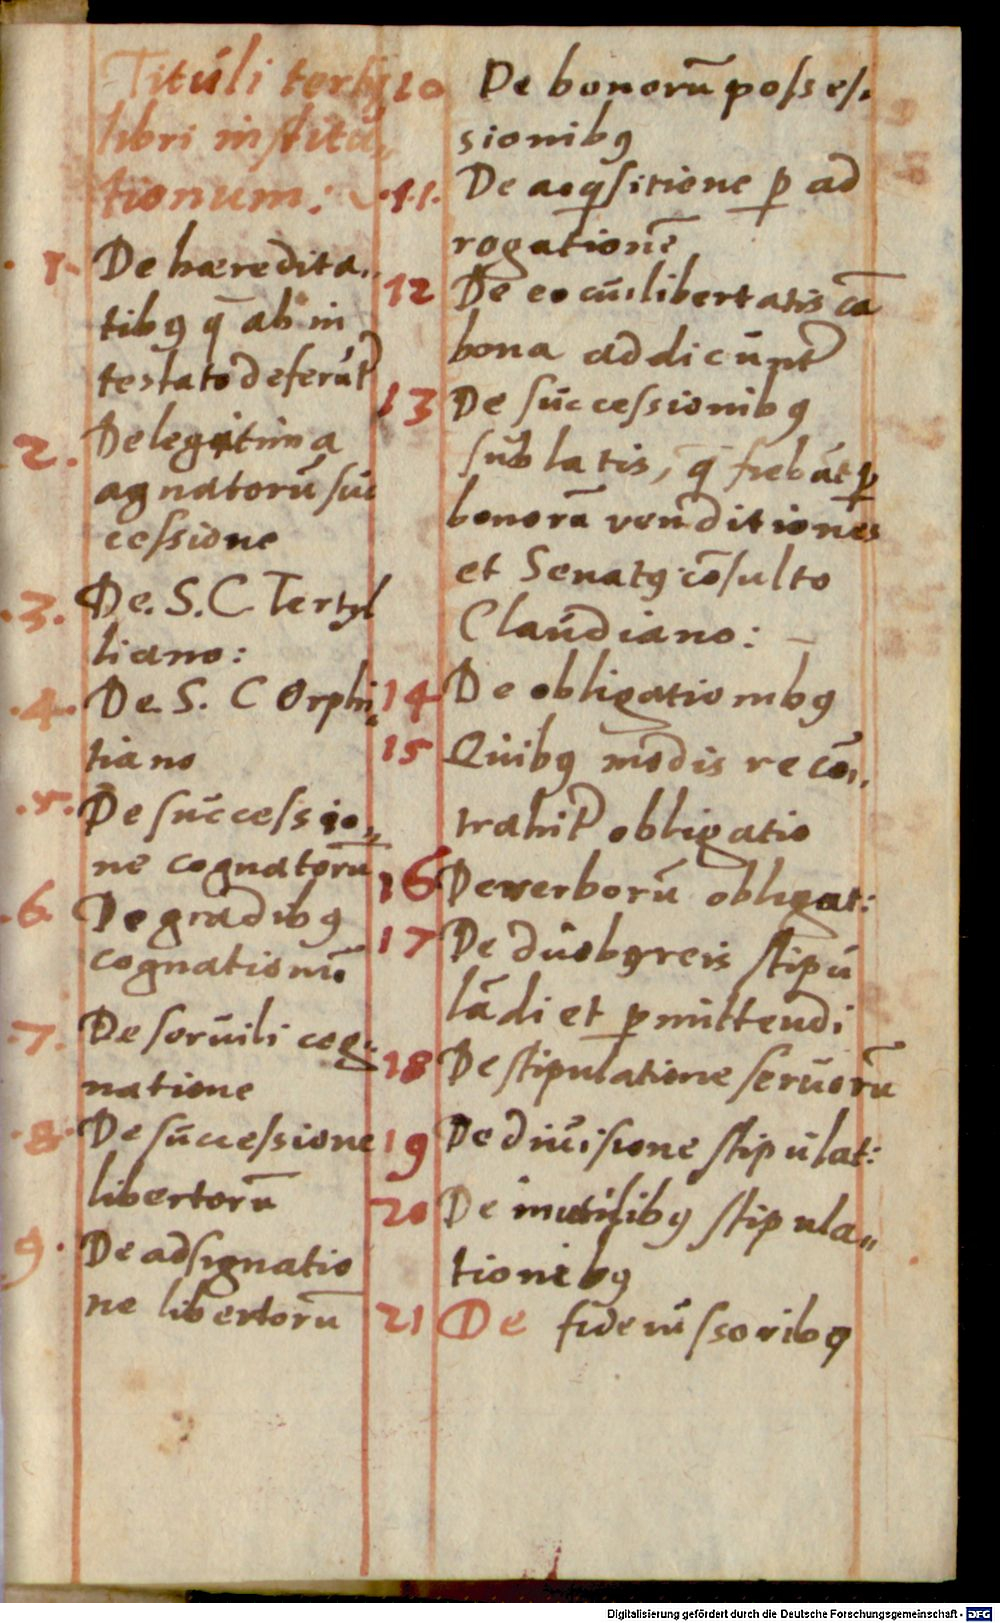 Titúli tertij
libri institú„
tionum:
1. De hæredita„
tibꝫ q̃ ab in
testato deferũt᷑
2. De legitima
agnatorũ súc
cessione
3. De. S. C. Tertyl
liano:
4. De. S. C Orphi„
tiano
5. De súccessio„
ne cognatorũ
6. De gradibꝫ
cognationũ
7. De serúili cog:
natione
8. De súccessione
libertorũ
9. De adsignatio
ne libertorũ
10 De bonorũ posses„
sionibꝫ
11. De acq̇sitione ꝑ ad
rogationẽ
12 De eo cúi libertatis cã
bona addicúnt᷑
13 De súccessionibꝫ
súblatis, q̃ fiebãt ꝑ
bonorũ venditiones
et Senatꝫ cõsulto
Claúdiano:
14 De obligationibꝫ
15 Quibꝫ modis re cõ„
trahit᷑ obligatio
16 De verborũ obligat:
17 De dúobꝫ reis stipú
lãdi et ꝓmittendi
18 De stipulatione seruorũ
19 De diúisione stipúlat:
20 De inutilibꝫ stipula„
tionibꝫ
21 De fideiússoribꝫ
Digitalisierung gefördert durch die Deutsche Forschungsgemeinschaft - DFG